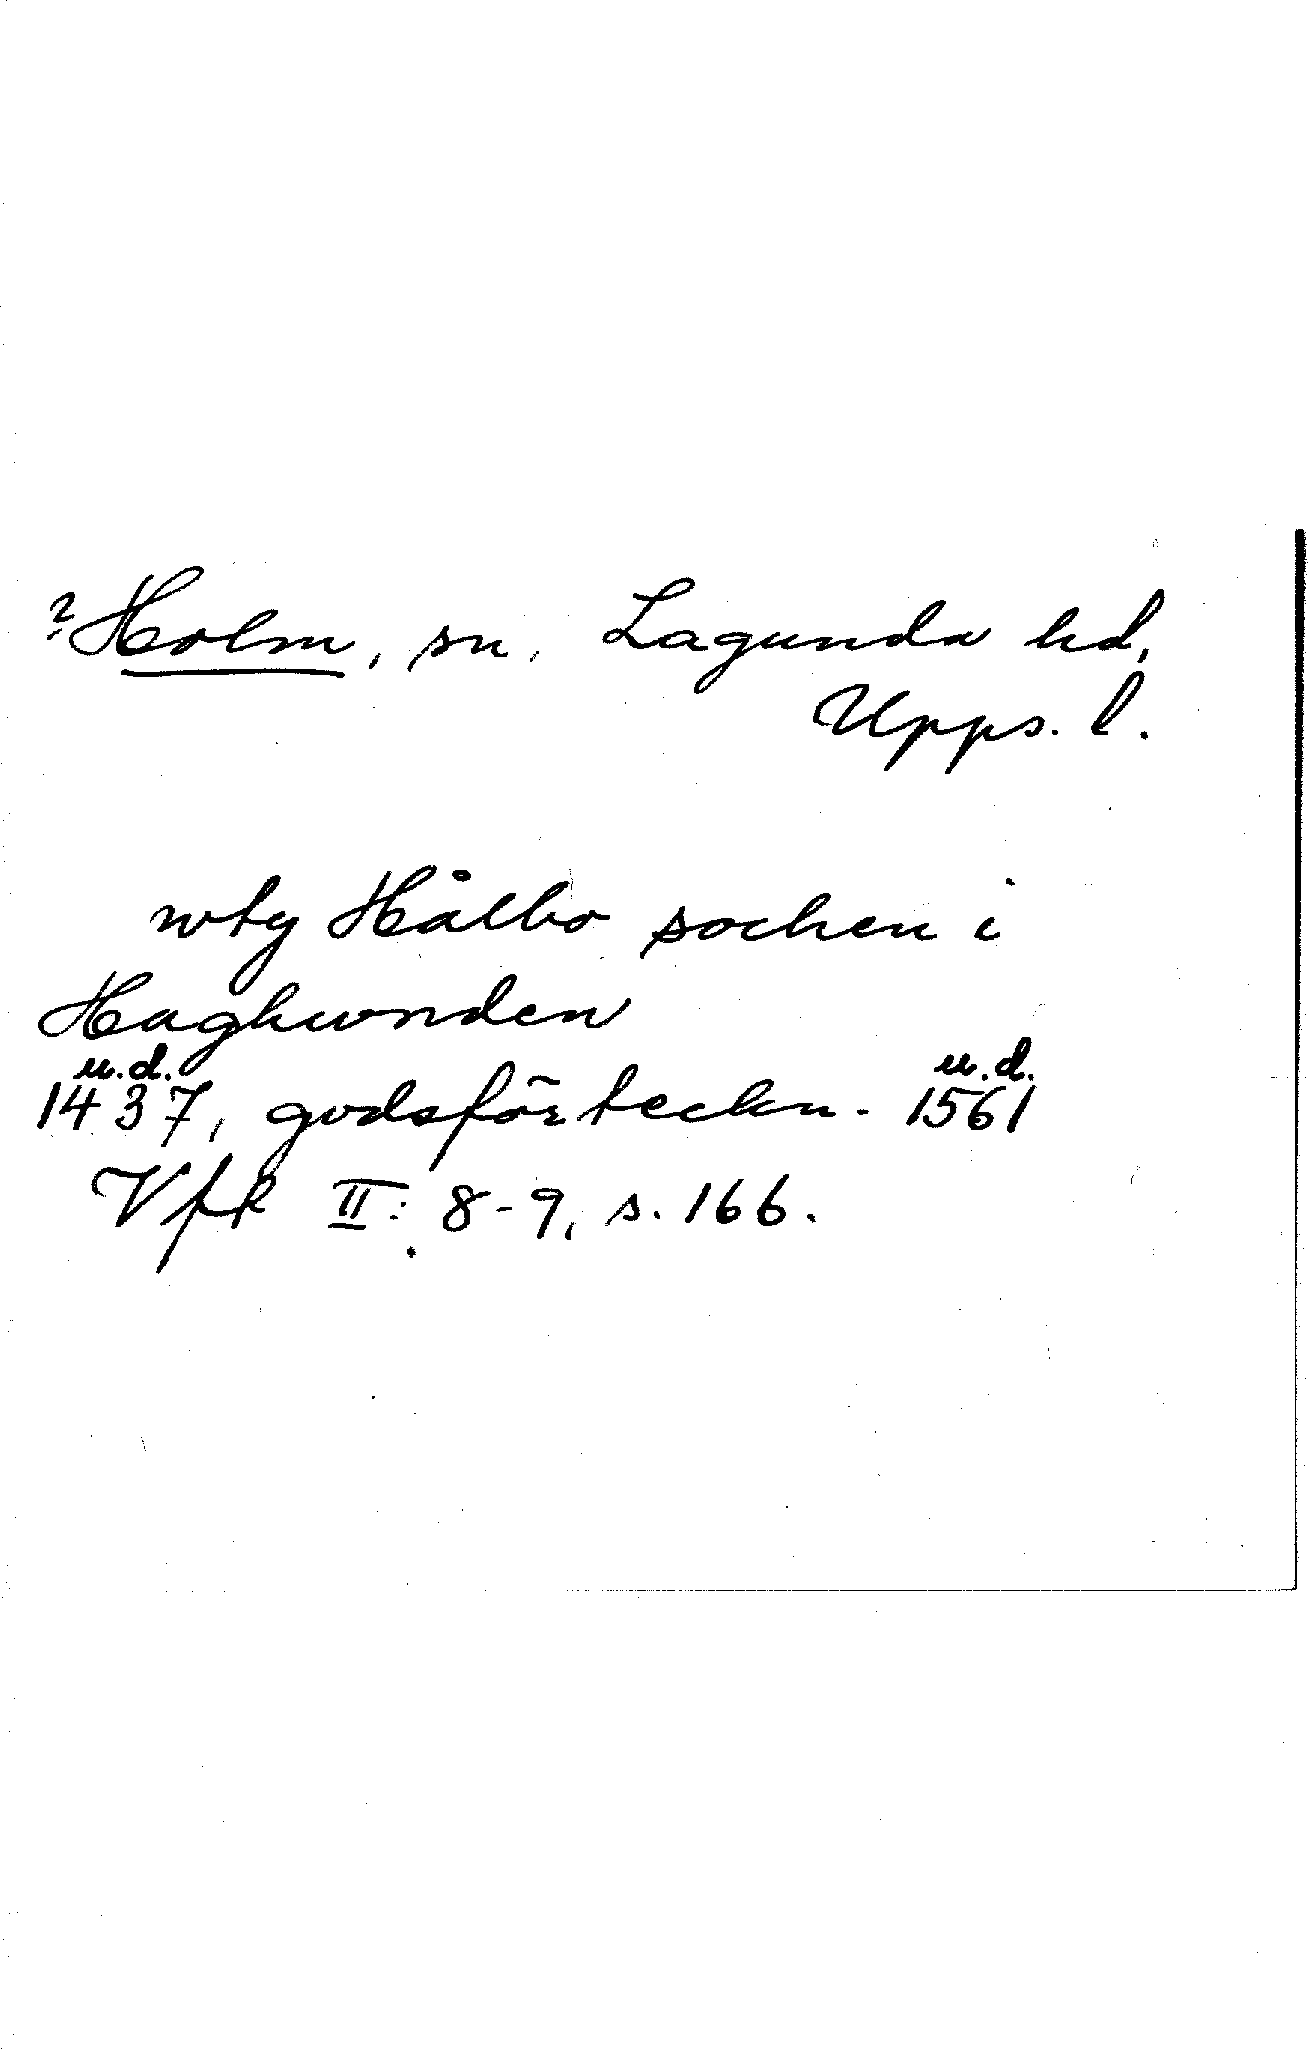 ? Holm, sn, Lagunda hd,
Upps. l.
wty Hålbo sochen i
Haghwnden
u.d. u.d.
1437, godsförteckn. 1561
Vfk II: 8-9, s. 166.